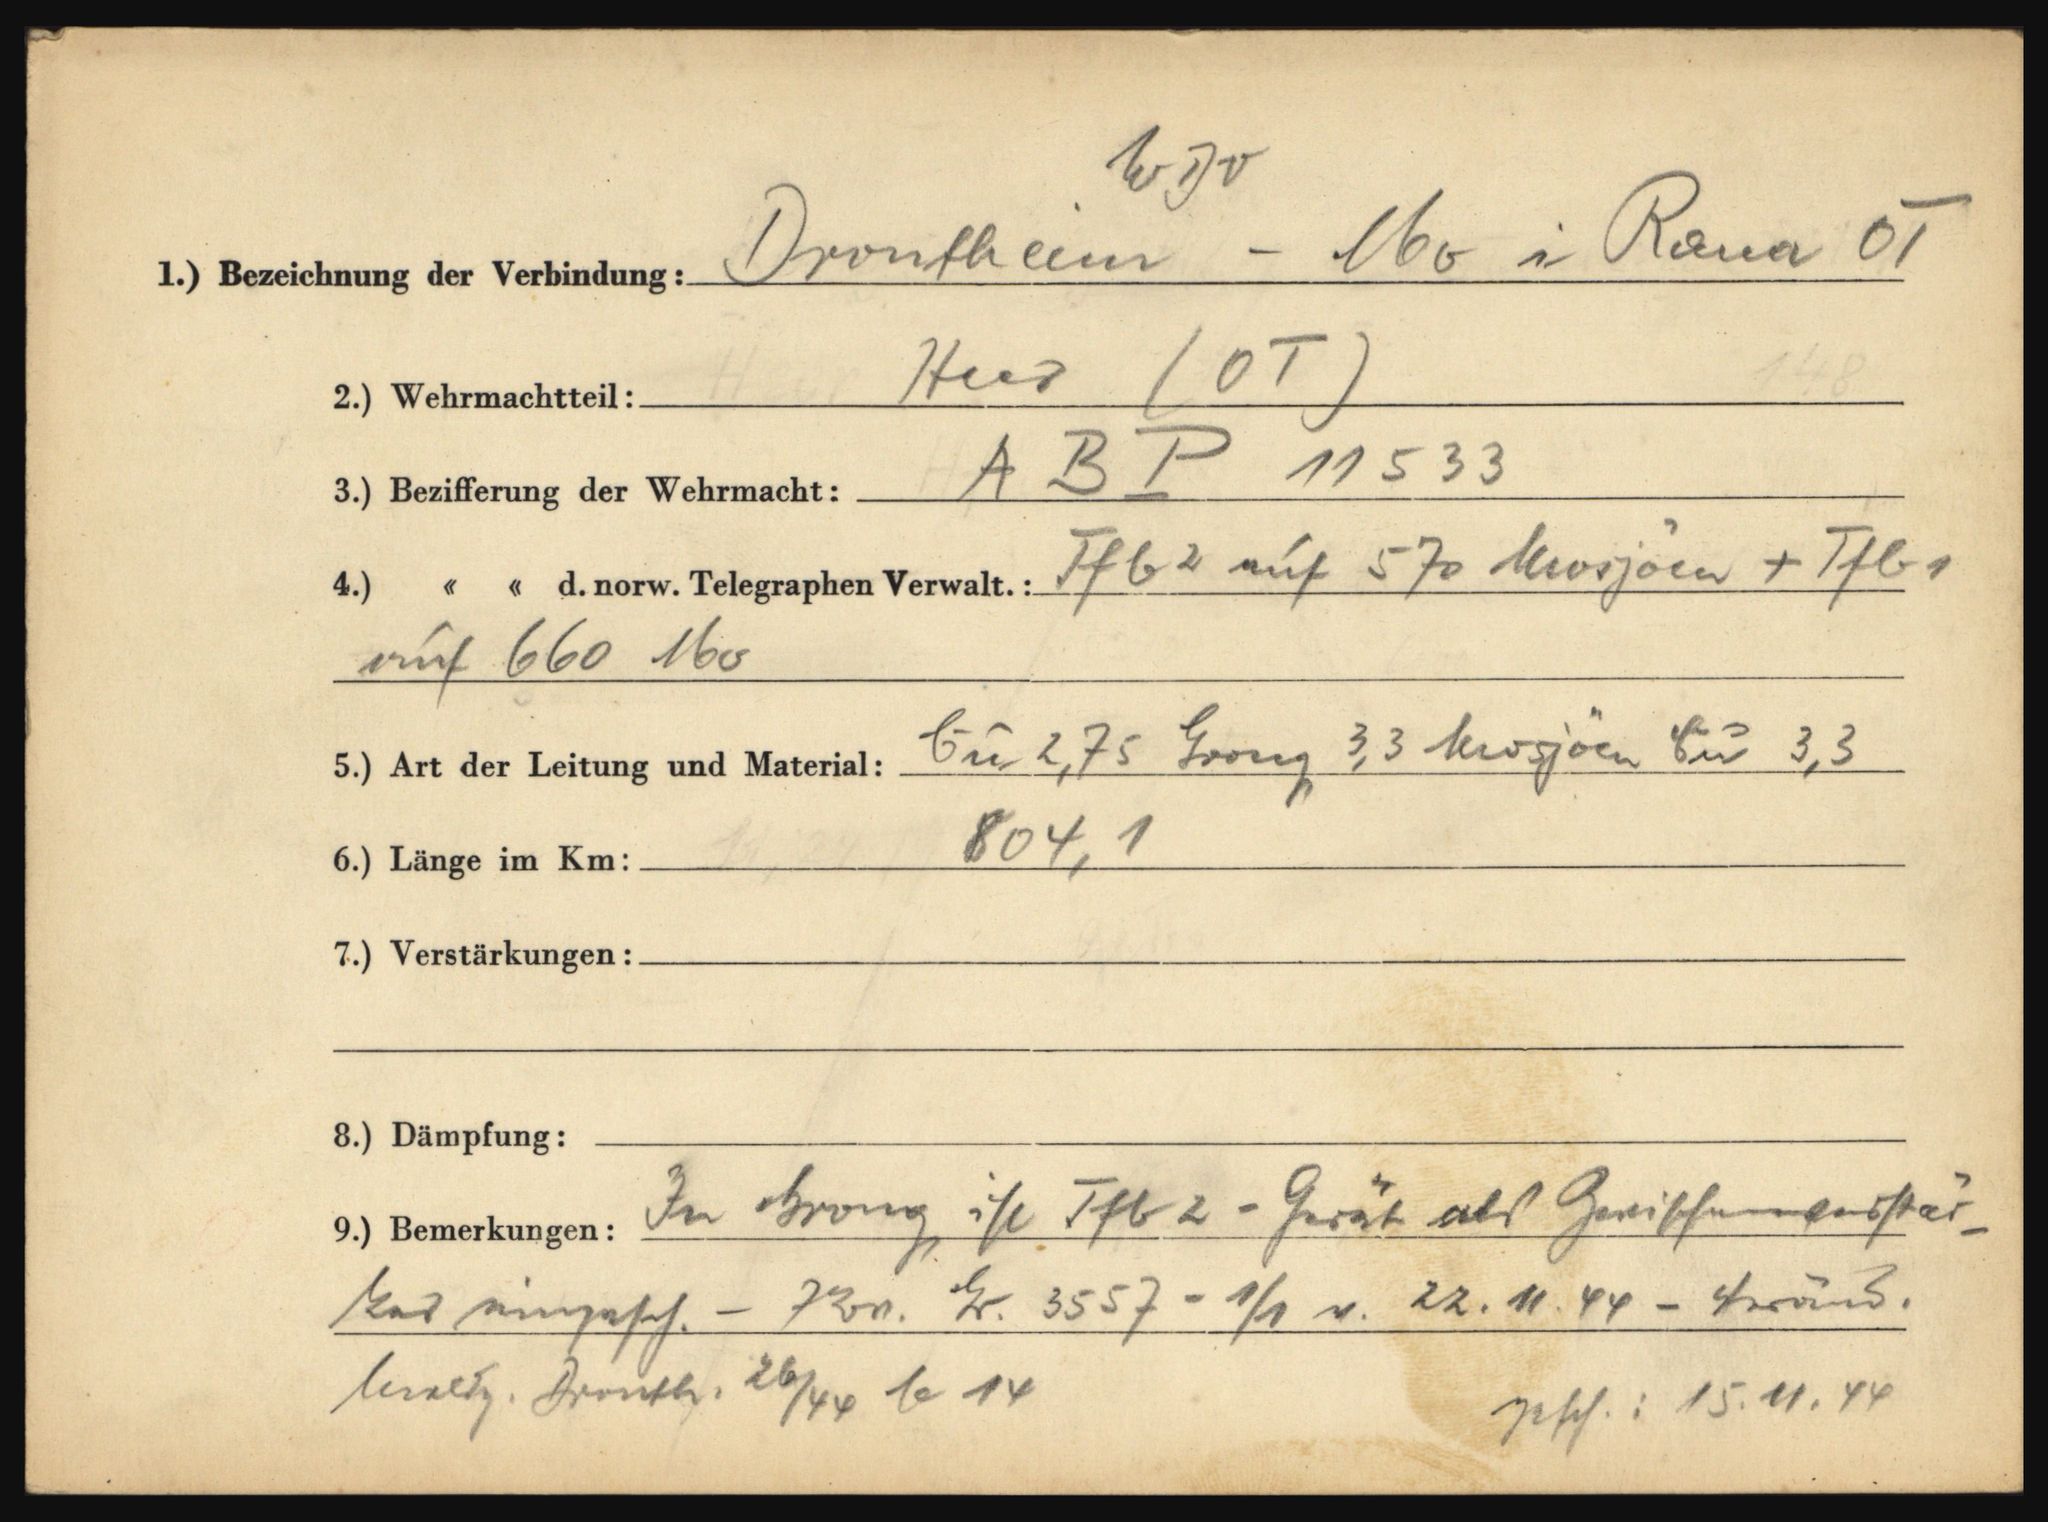 WDV
1.) Bezeichnung der Verbindung: Drontheim - Mo i Rana OT
2.) Wehrmachtteil: Heer (OT)
3.) Bezifferung der Wehrmacht: A B P 11533
4.) « « d. norw. Telegraphen Verwalt.: Tfb 2 auf 570 Mosjöen + Tfb 1
auf 660 Mo
5.) Art der Leitung und Material: Cu 2,75 Grong 3,3 Mosjöen Cu 3,3
6.) Länge im Km: 804,1
7.) Verstärkungen:
8.) Dämpfung:
9.) Bemerkungen: In Grong ist Tfb 2 - Gerät als Zwischenverstär-
ker eingesch. - 3557 - 1/1 v. 22.11.44 -
Dronth. 26/44 14
gesch.: 15.11.44